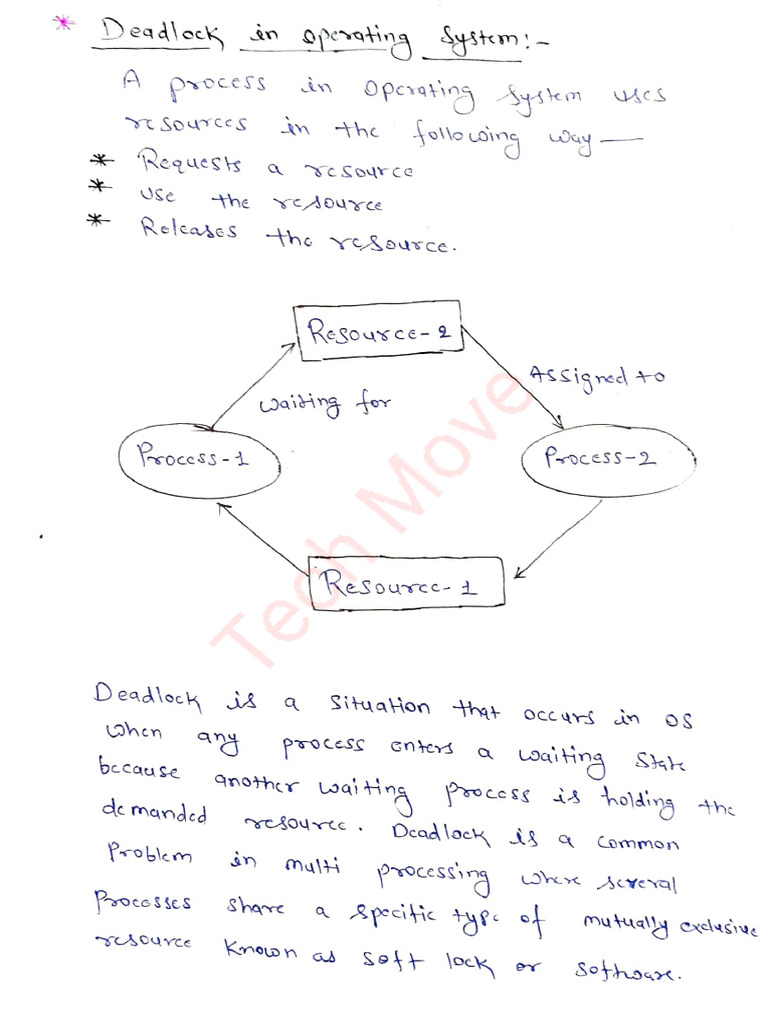 * Deadlock in operating System:-
A process in Operating System uses
resources in the following way—
* Requests a resource
* Use the resource
* Releases the resource.
Resource-2
Assigned to
Waiting for
Process-1
Process-2
Tech Move
Resource-1
Deadlock is a situation that occurs in OS
when any process enters a waiting state
because another waiting process is holding the
demanded resource. Deadlock is a common
Problem in multi processing where several
Processes share a specific type of mutually exclusive
resource known as soft lock or software.